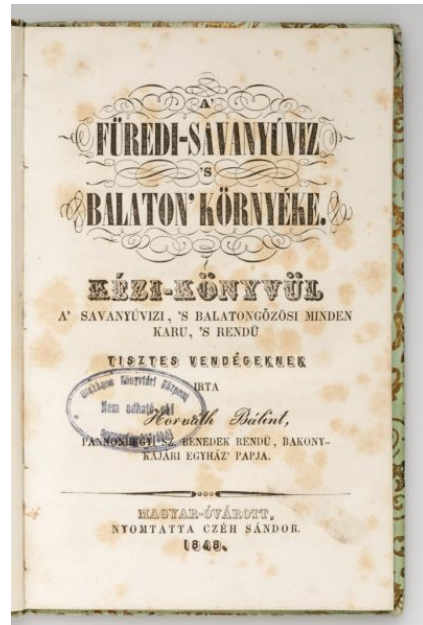 A'
FÜREDI-SAVANYÚVIZ
'S
BALATON' KÖRNYÉKE.
KÉZI-KÖNYVÜL
A' SAVANYÚVIZI, 'S BALATONGŐZÖSI MINDEN
KARU, 'S RENDÜ
TISZTES VENDÉGEKNEK
IRTA
Horváth Bálint,
PANNONHEGYI SZ. BENEDEK RENDÜ, BAKONY-
KAJARI EGYHÁZ' PAPJA.
Országos Könyvtári Központ
Nem adható ki
MAGYAR-ÓVÁROTT,
NYOMTATTA CZÉH SÁNDOR.
1848.